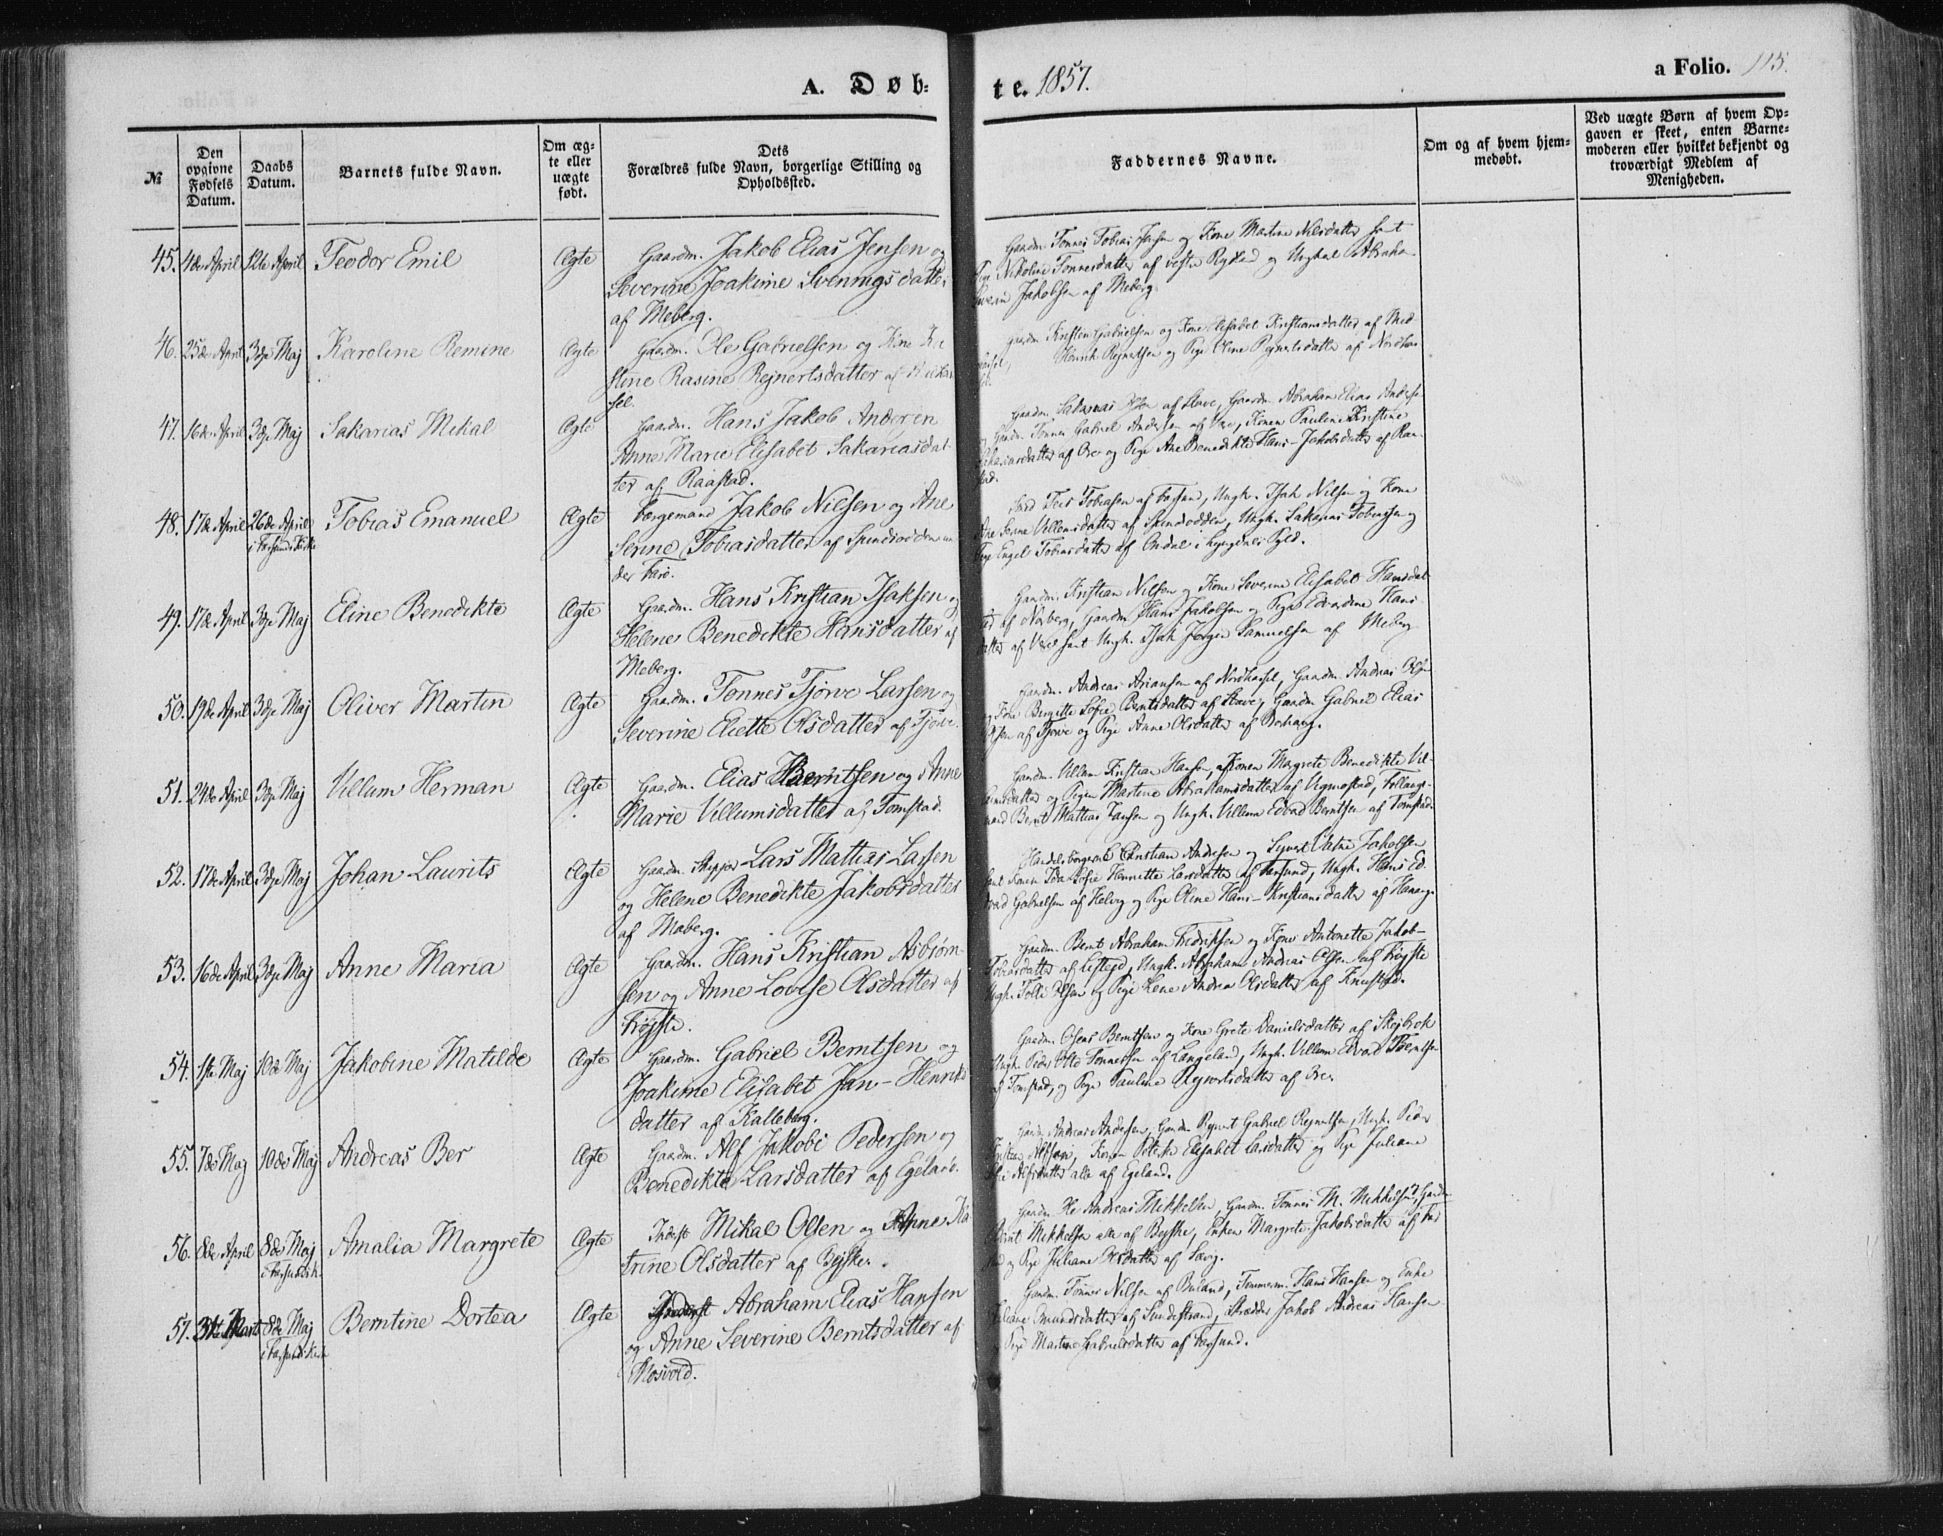 A. Døb-
te. 1857.
a Folio. 115.
№
Den opgivne Fødsels Datum.
Daabs Datum.
Barnets fulde Navn.
Om ægte eller uægte født.
Dets
Forældres fulde Navn, borgerlige Stilling og
Opholdssted.
Faddernes Navne.
Om og af hvem hjem-
medøbt.
Ved uægte Børn af hvem Op-
gaven er skeet, enten Barne-
moderen eller hvilket bekjendt og
troværdigt Medlem af
Menigheden.
45. 4de April 12te April Teodor Emil Ægte Gaardm. Jakob Elias Jensen og
Severine Joakime Svenningsdatter
af Meberg.
Gaardm. Tønnes Tobias Jensen og Kone Martine Nilsdatter samt
Pige Nikoline Tønnesdatter af vestre Rykled og Ungkal Abraha-
Severin Jakobsen af Meberg.
46. 25de April 3die Maj Karoline Remine Ægte Gaardm. Ole Gabrielsen og Kone
stine Rasine Rejnertsdatter af
sel.
Gaardm Kristen Gabrielsen og Kone Elisabet Kristiansdatter af
Henrik Rejnertsen og Pige Oline Rejnertsdatter af Nordhas
47. 16de April 3die Maj Sakarias Mikal Ægte Gaardm. Hans Jakob Andersen
Anne Marie Elisabet Sakariasdat-
ter af Raastad.
Gaardm. Sakarias Olsen af Stave, Gaardm. Abraham Elias Anderse
og Gaardm. Tønnes Gabriel Andersen af Ore, Konen Pauline Kristine
Sakariasdatter af Ore og Pige Ane Benedikte Hans-Jakobsdatter af Raa-
stad.
48. 17de April 26de April Tobias Emanuel Ægte Færgemand Jakob Nilsen og Ane
i Farsunds Kirke
Serine Tobiasdatter af Spindsodden un
der Farø.
Teis Tobiasen af Farsund, Ungk. Isak Nilsen og Kone
Ane Serine Villumsdatter af Spindsodden, Ungk. Sakarias Tobiassen og
Pige Engel Tobiasdatter af Ondal i Lyngdals Pgld.
49. 17de April 3die Maj Eline Benedikte Ægte Gaardm. Hans Kristian Isaksen og
Helene Benedikte Hansdatter af
Meberg.
Gaardm. Kristian Nilsen og Kone Severine Elisabet Hansdat
ter af Norberg, Gaardm. Hans Jakobsen og Pige Edvardine Hans
datter af samt Ungk. Isak Jørgen Samuelsen af Meberg
50. 19de April 3die Maj Oliver Martin Ægte Gaardm. Tønnes Tjørve Larsen og
Severine Eliette Olsdatter af Tjørve
Gaardm. Andreas Ariansen af Nordhassel, Gaardm Andreas Olsen
og Kone Bergitte Sofie Berntsdatter af Stave, Gaardm Gabriel Elias
Olsen af Tjørve og Pige Anne Olsdatter af Bohaug.
51. 24de April 3die Maj Villum Herman Ægte Gaardm. Elias Berntsen og Anne
Marie Villumsdatter af Tomstad.
Gaardm. Villum Kristian Hansen, Konen Margrete Benedikte Vil-
lumsdatter og Pigen Martine Abrahamsdatter af Ugmestad, Follaugs-
mand Bernt Mattias Jansen og Ungk. Villum Edvard Berntsen af Tomstad.
52. 17de April 3die Maj Johan Laurits Ægte Gaardm. Skipper Lars Mattias Larsen
og Helene Benedikte Jakobsdatter
af Maberg.
Handelsborgerne Christian Andresen og Syvert Vatne Jakobsen
samt Konen Ida Sofie Henriette Larsdatter af Farsund, Ungk. Hans Ed-
vard Gabrielsen af Helvig og Pige Oline Hans-Kristiansdatter af Hanang
53. 16de April 3die Maj Anne Maria Ægte Gaardm. Hans Kristian Asbiørn-
sen og Anne Lovise Olsdatter af
Frøiste.
Gaardm. Bernt Abraham Fredriksen og Kone Antonette Jakob-
Tobiasdatter af Listejd, Ungk. Abraham Andreas Olsen af Frøiste
Ungk. Tolle Olsen og Pige Lene Andrea Olsdatter af Knustad.
54. 1ste Maj 10de Maj Jakobine Matilde Ægte Gaardm. Gabriel Berntsen og
Joakime Elisabet Jan-Henriks
datter af Kalleberg.
Gaardm. Osens Berntsen og Kone Grete Danielsdatter af Skejbrok
Ungk. Peder Olto Tønnessen af Langeland, Ungk. Villum Edvard Berntsen
af Tomstad, og Pige Pauline Rejnertsdatter af Ore.
55. 7de Maj 10de Maj Andreas Ber Ægte Gaardm. Alf Jakobi Pedersen og
Benedikte Larsdatter af Egeland.
Gaardm Andreas Andersen, Gaardm Rejnert Gabriel Rejnertsen, Ungk. Peder
Kristian Alfsen, Konen Petrike Elisabet Larsdatter og Pige Juliane
Alfsdatter alle af Egeland.
56. 8de April 8de Maj Amalia Margrete Ægte Inderst Mikal Olsen og Anne Ka-
i Farsunds Kirke
trine Olsdatter af Bejske.
Gaardm. Ole Andreas Mikkelsen, Gaardm. Tønnes M. Mikkelsen, Gaardm
Bernt Mikkelsen alle af Bejske, Enken Margrete Jakobsdatter af Far
sund og Pige Juliane Olsdatter af Lævig.
57. 31te Marts 8de Maj Berntine Dortea Ægte Inderst Abraham Elias Hansen
i Farsunds Kirke
og Anne Severine Berntsdatter af
Mosvold.
Gaardm. Tønnes Nilsen af Buland, Tømmerm. Hans Hansen og Enke
Juliane Omundsdatter af Sundestrand, Skrædder Jakob Andreas Hansen
Pige Martine Gabrielsdatter af Farsund.